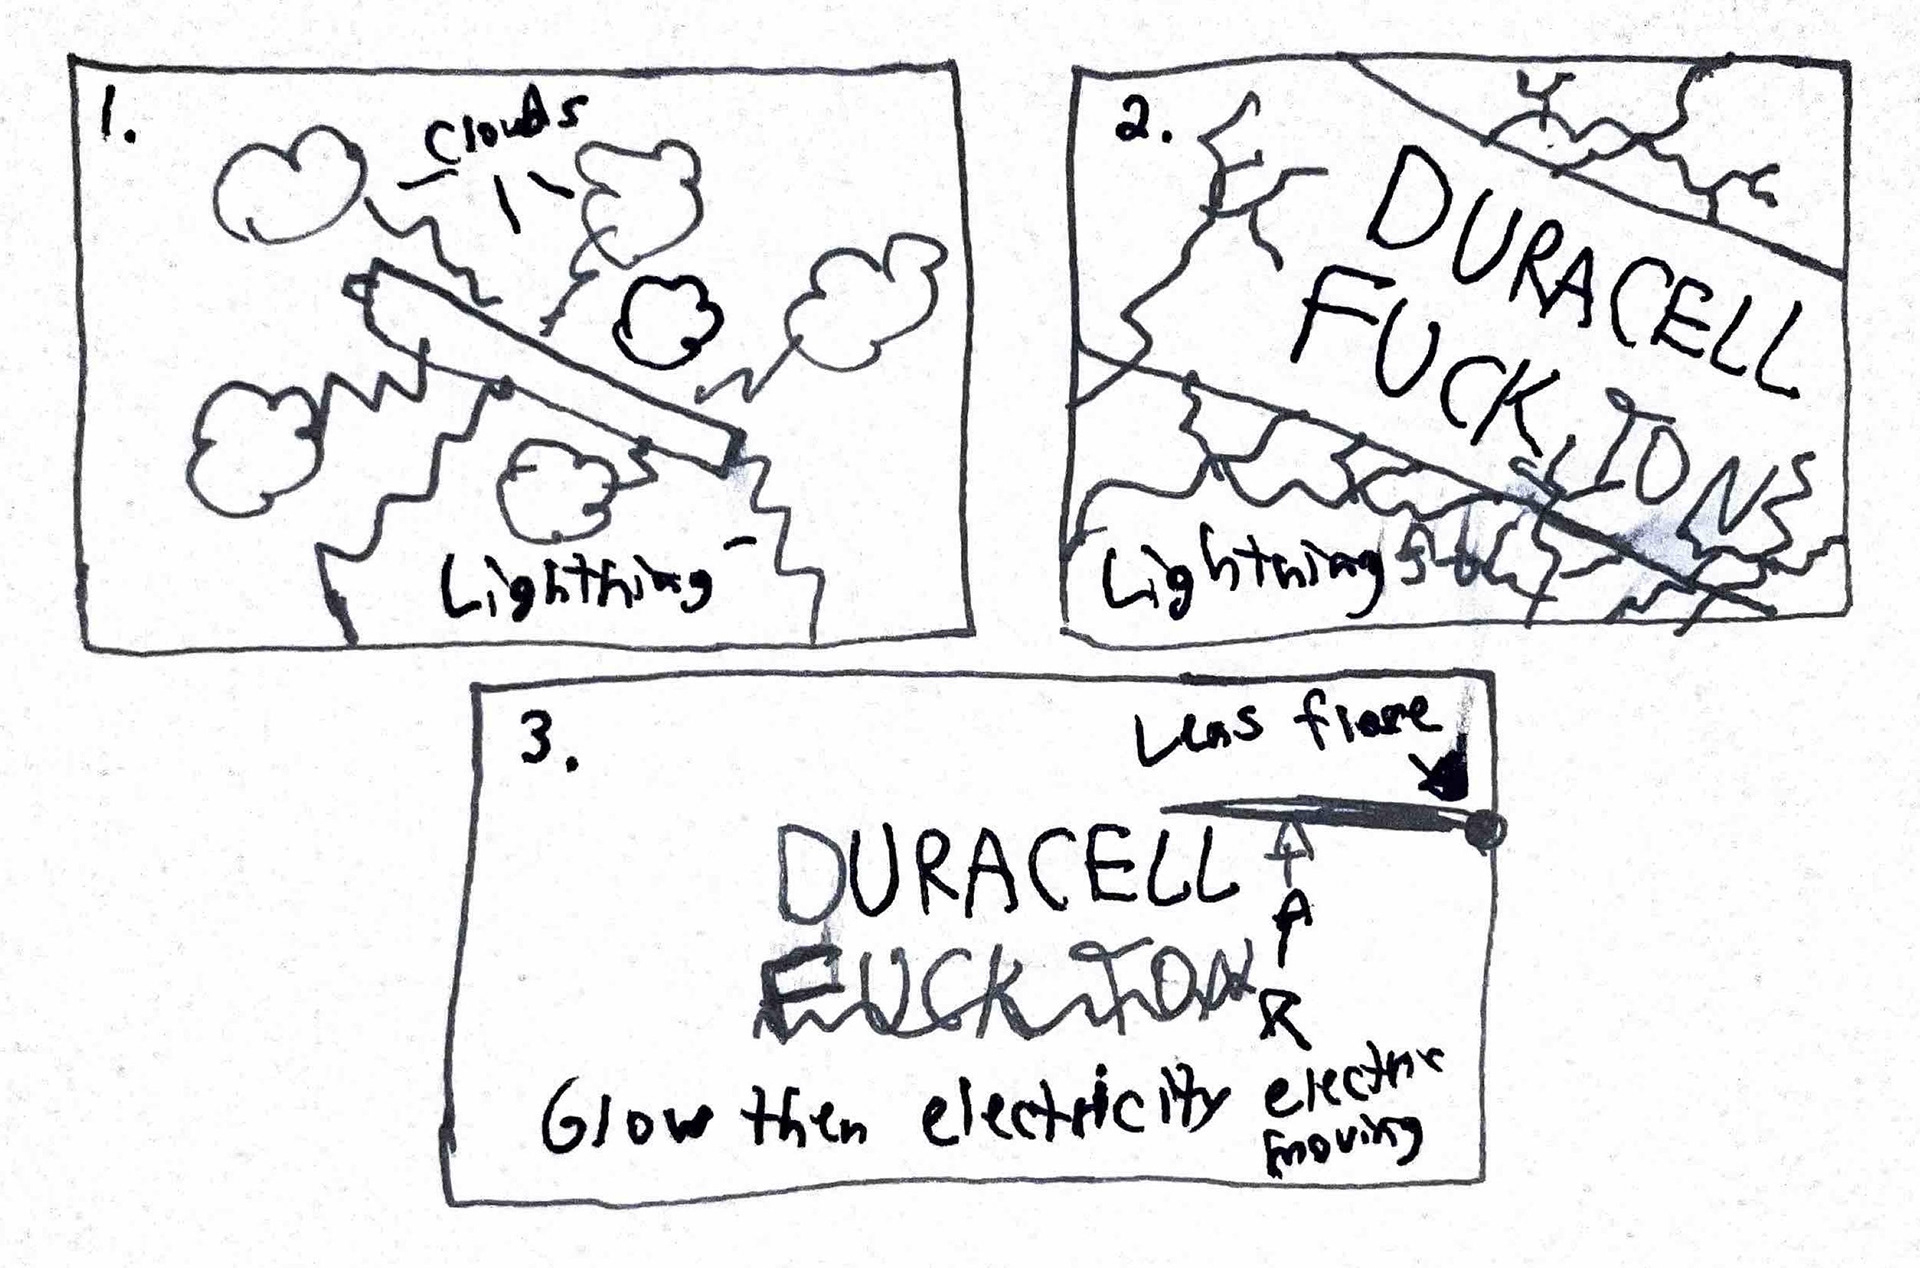 1.
Clouds
Lighthing
2.
DURACELL
FUCK TONS
Lightning
3.
Lens flare
DURACELL
FUCK TON
Glow then electricity
electric
moving